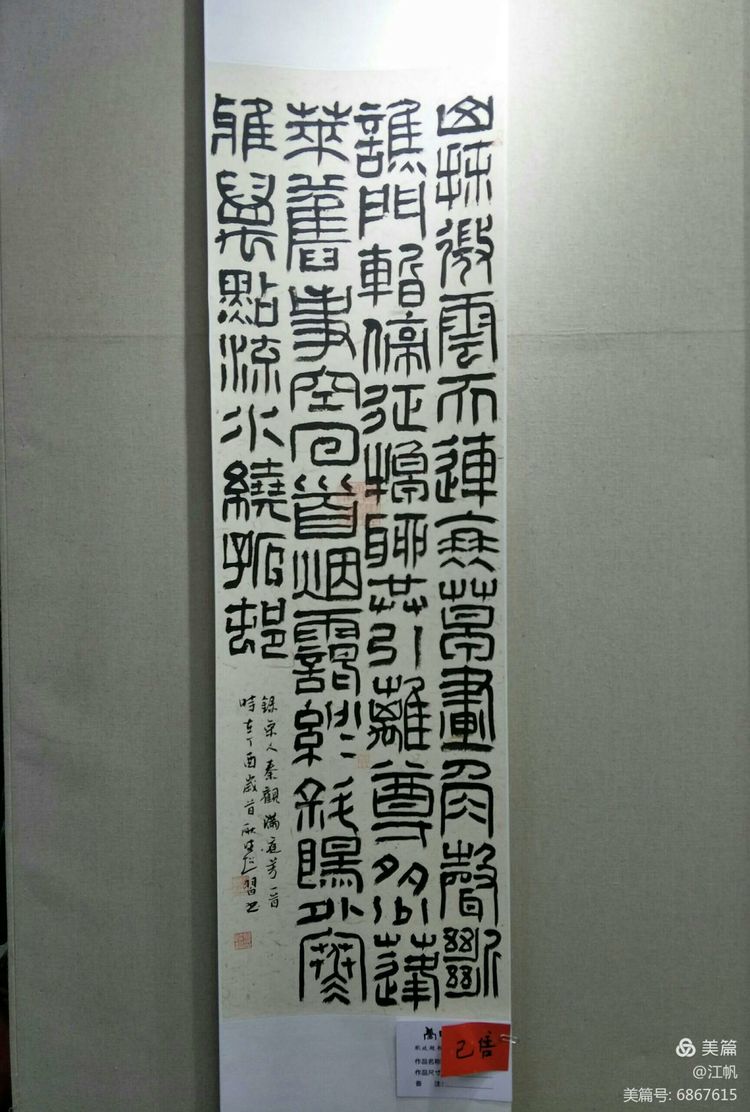 山抹微雲天連衰草畫角聲斷
譙門暫停征棹聊共引離尊多少蓬
萊舊事空回首烟靄紛〻斜陽外寒
雅萬點流水繞孤村
錄宋人秦觀滿庭芳一首
時在丁酉歲首習书
已售
作品名称
作品尺寸
备 注:
美篇
@江帆
美篇号: 6867615